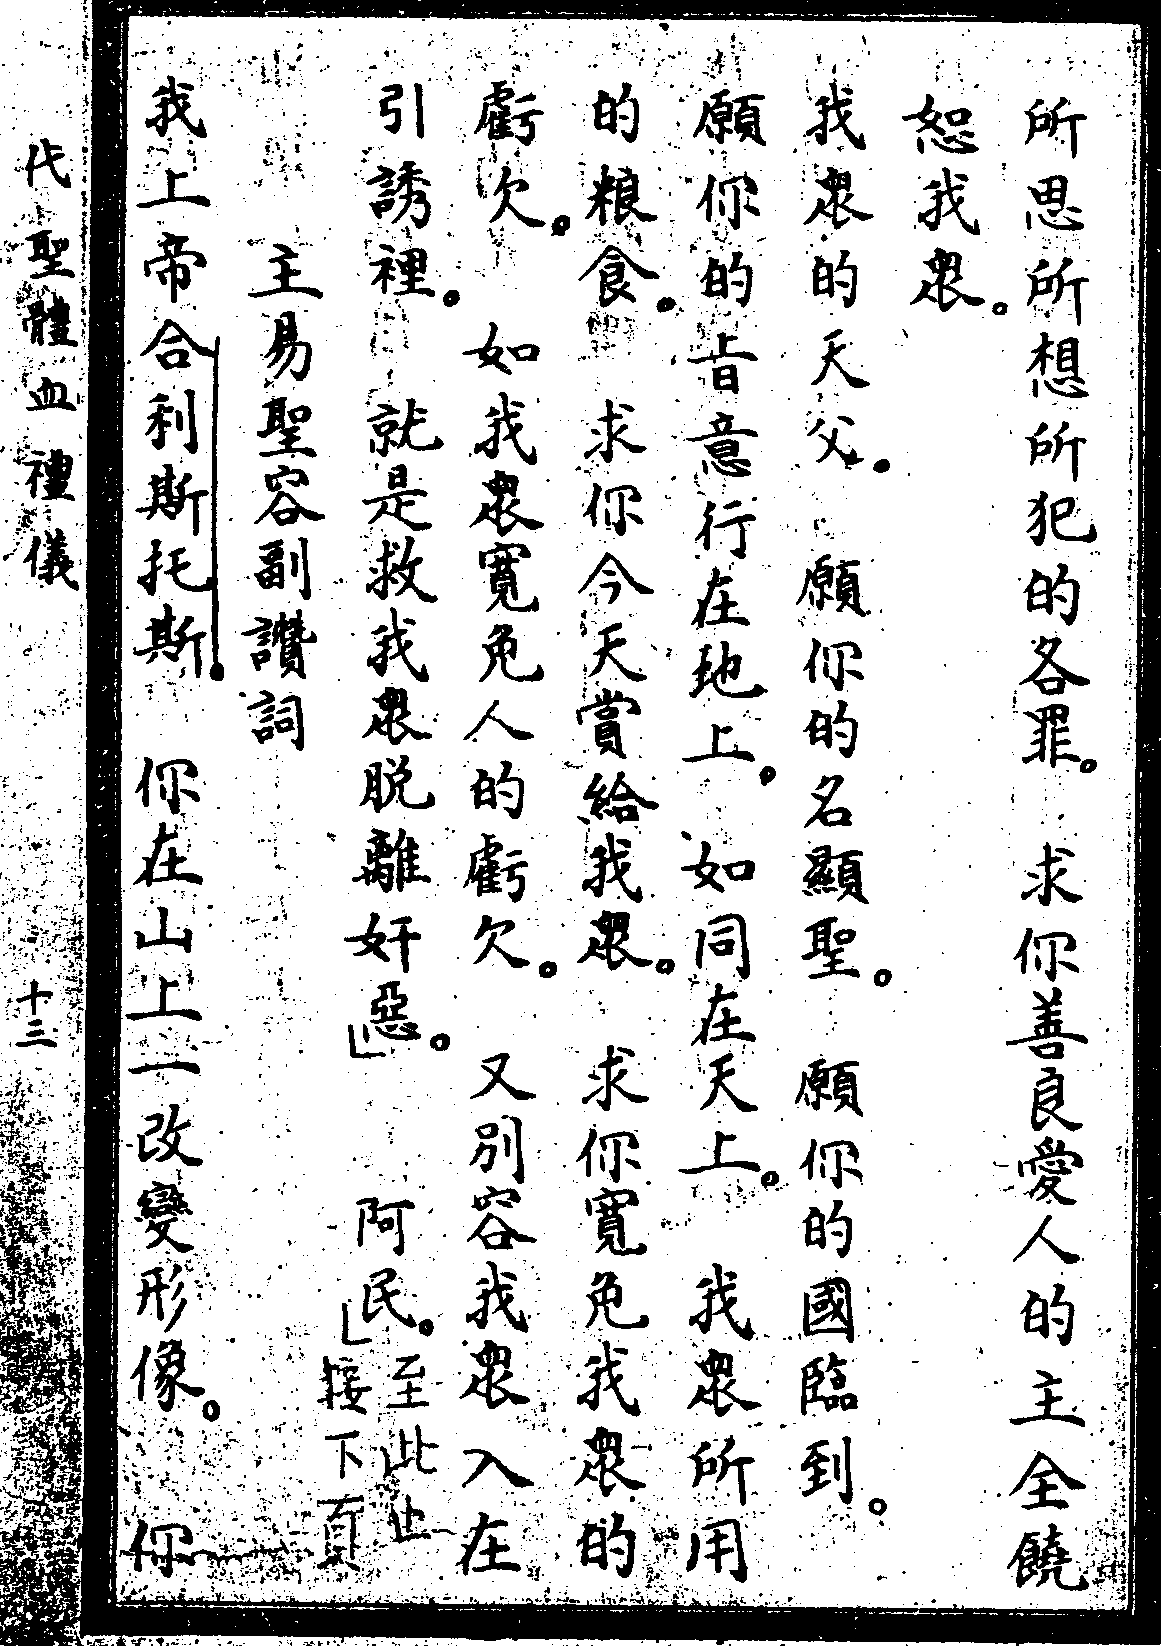 所思所想所犯的各罪。求你善良愛人的主全饒
恕我衆。
我衆的天父。願你的名顯聖。願你的國臨到。
願你的旨意行在地上。如同在天上。我衆所用
的粮食。求你今天賞給我衆。求你寬免我衆的
虧欠。如我衆寬免人的虧欠。又別容我衆入在
引誘裡。就是救我衆脱離奸惡。」阿民。」至此止接下頁
主易聖容副讚詞
我上帝合利斯托斯。你在山上一改變形像。你
代聖體血禮儀
十三